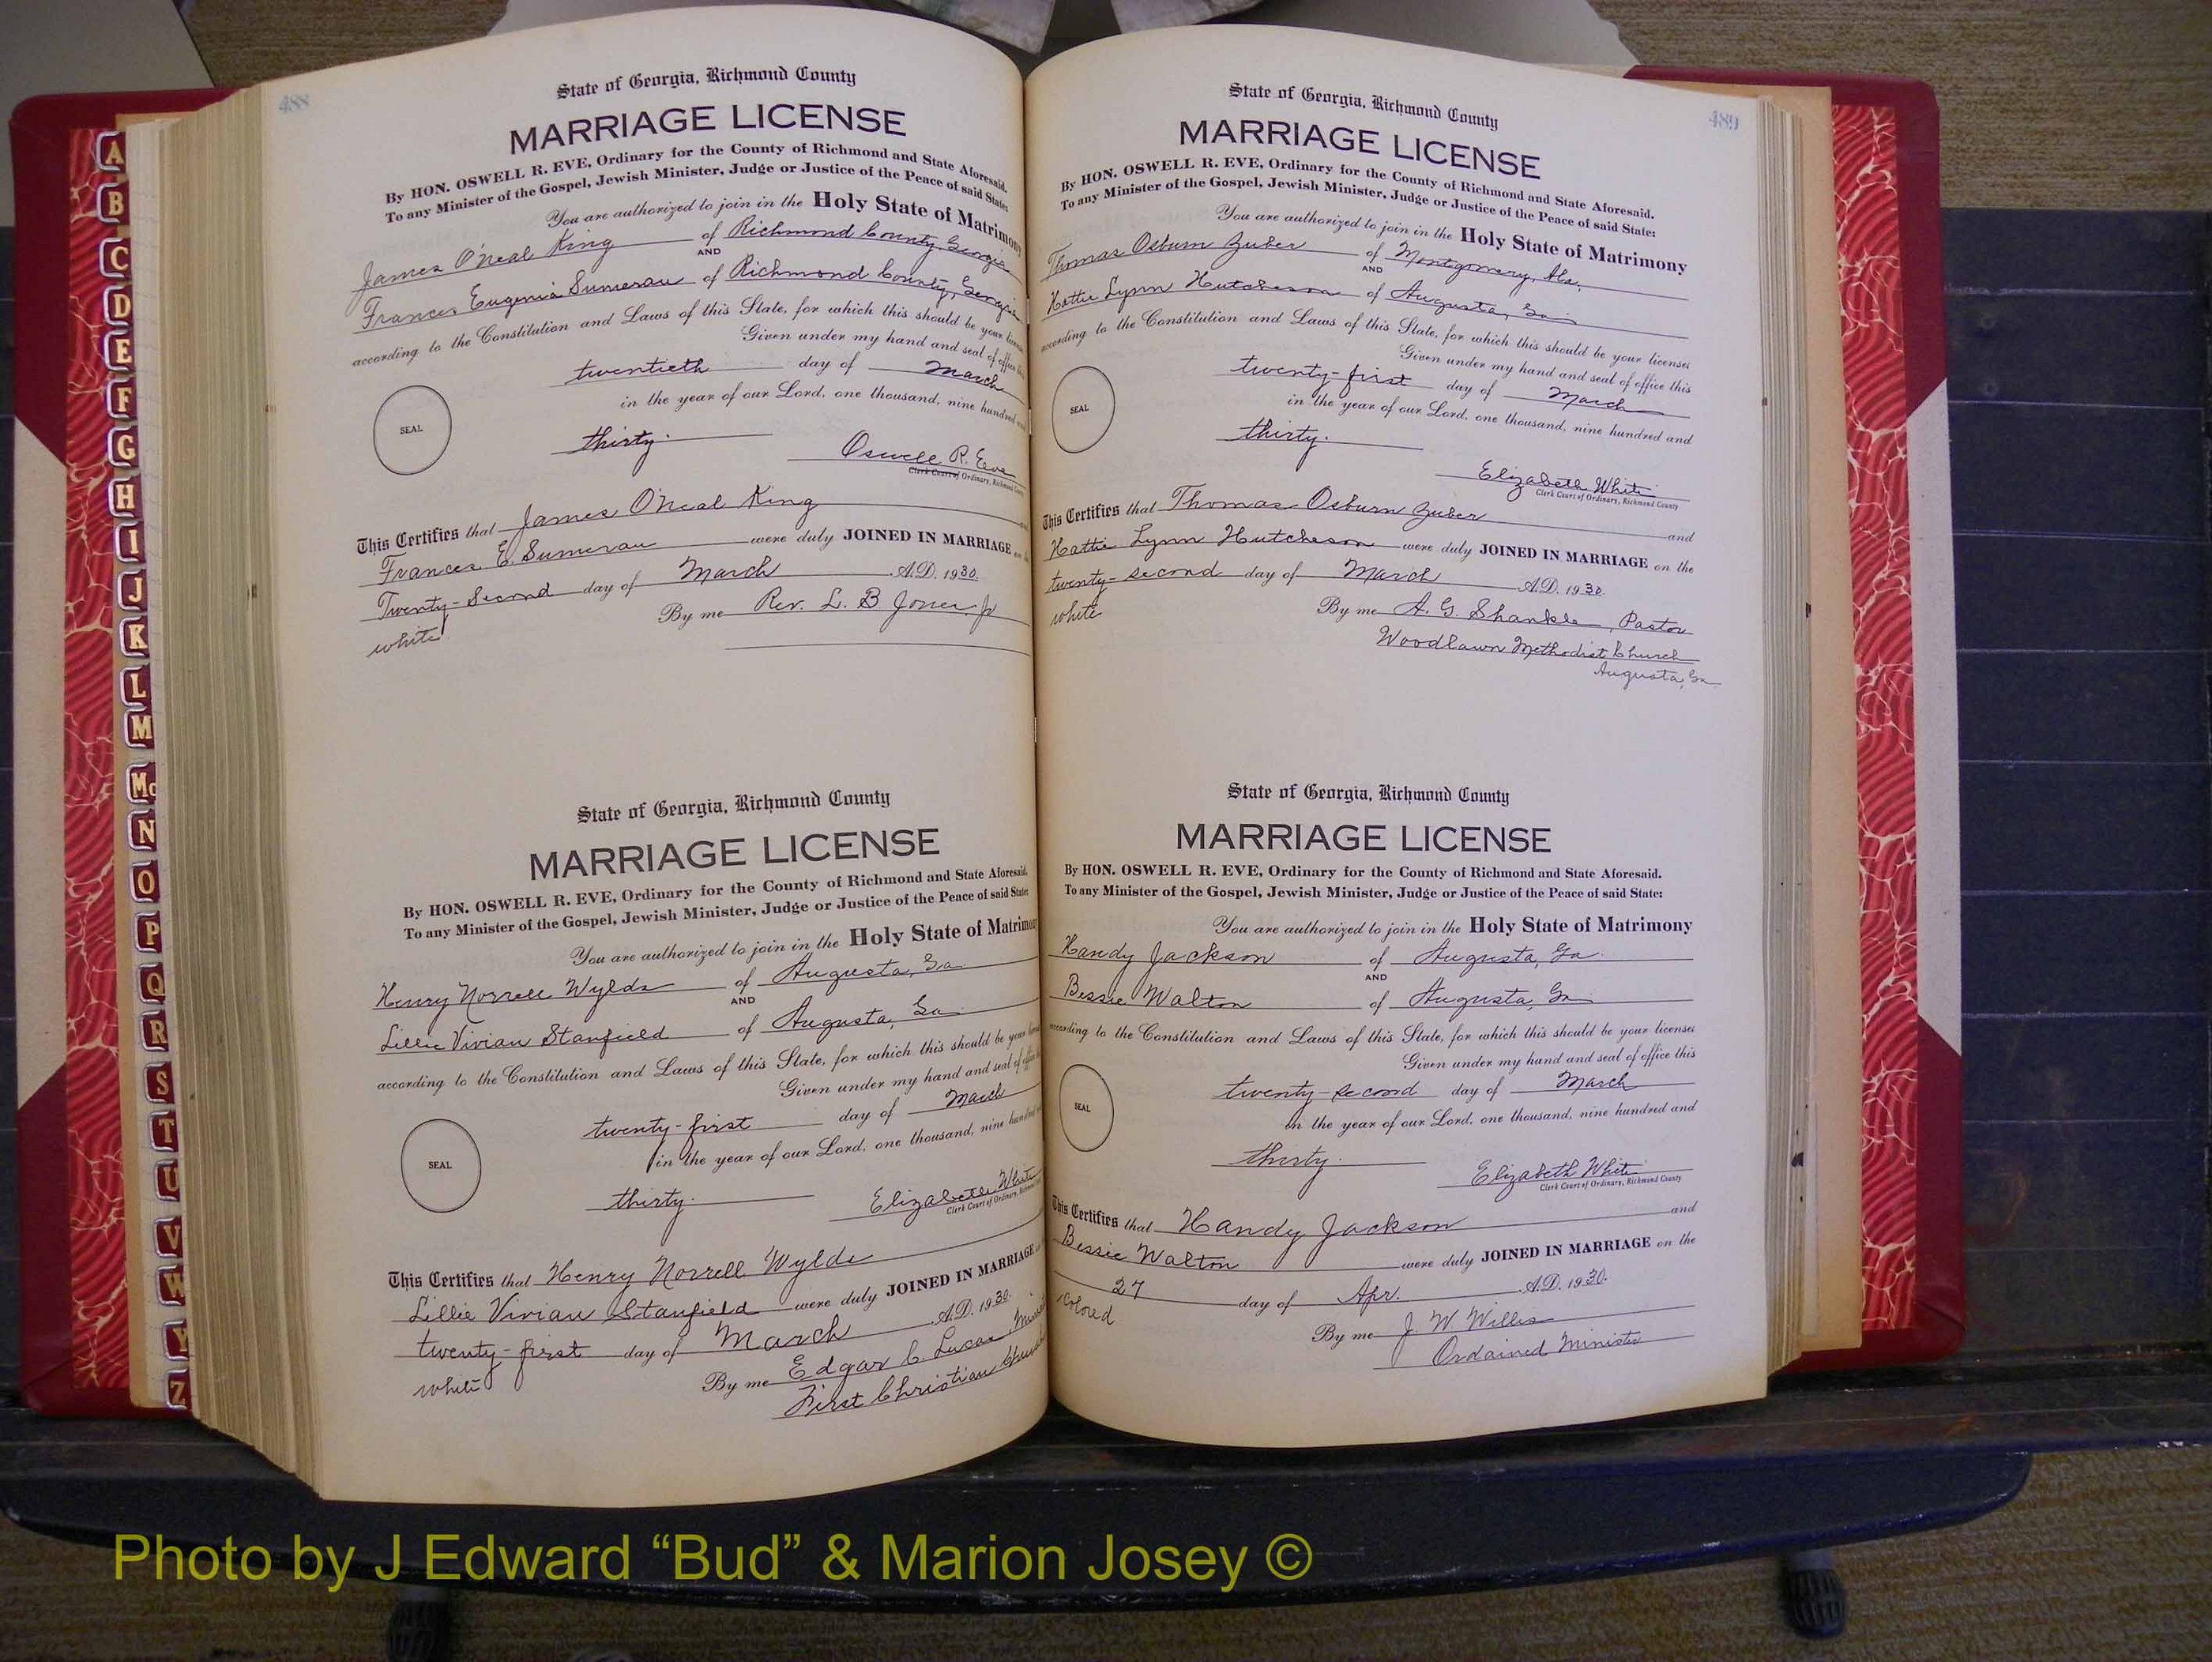 A
B
C
D
E
F
G
H
I
J
K
L
M
Mc
N
O
P
Q
R
S
T
U
V
W
Y
Z
488
State of Georgia, Richmond County
MARRIAGE LICENSE
By HON. OSWELL R. EVE, Ordinary for the County of Richmond and State Aforesaid.
To any Minister of the Gospel, Jewish Minister, Judge or Justice of the Peace of said State:
You are authorized to join in the Holy State of Matrimony
James O'Neal King of Richmond County, Georgia
AND
Frances Eugenia Sumerau of Richmond County, Georgia
according to the Constitution and Laws of this State, for which this should be your
Given under my hand and seal of office
twentieth day of March
in the year of our Lord, one thousand, nine hundred
SEAL
thirty.
Oswell R. Eve
Clerk Court of Ordinary, Richmond
This Certifies that James O'Neal King
Frances E. Sumerau were duly JOINED IN MARRIAGE
Twenty-Second day of March A.D. 1930.
white
By me Rev. L. B Jones, Jr
State of Georgia, Richmond County
MARRIAGE LICENSE
By HON. OSWELL R. EVE, Ordinary for the County of Richmond and State Aforesaid.
To any Minister of the Gospel, Jewish Minister, Judge or Justice of the Peace of said State:
You are authorized to join in the Holy State of Matrimony
Henry Norrell Wylds of Augusta, Ga.
AND
Lillie Vivian Stanfield of Augusta, Ga.
according to the Constitution and Laws of this State, for which this should be your
Given under my hand and seal of office
twenty-first day of March
in the year of our Lord, one thousand, nine hundred
SEAL
thirty.
Elizabeth White
Clerk Court of Ordinary, Richmond
This Certifies that Henry Norrell Wylds
Lillie Vivian Stanfield were duly JOINED IN MARRIAGE
twenty-first day of March A.D. 1930.
white
By me Edgar C Lucas,
First Christian
489
State of Georgia, Richmond County
MARRIAGE LICENSE
By HON. OSWELL R. EVE, Ordinary for the County of Richmond and State Aforesaid.
To any Minister of the Gospel, Jewish Minister, Judge or Justice of the Peace of said State:
You are authorized to join in the Holy State of Matrimony
Thomas Osburn Zuber of Montgomery, Ala.
AND
Hattie Lynn Hutcheson of Augusta, Ga
according to the Constitution and Laws of this State, for which this should be your licenses
Given under my hand and seal of office this
twenty-first day of March
in the year of our Lord, one thousand, nine hundred and
SEAL
thirty.
Elizabeth White
Clerk Court of Ordinary, Richmond County
This Certifies that Thomas Osburn Zuber and
Hattie Lynn Hutcheson were duly JOINED IN MARRIAGE on the
twenty-second day of March A.D. 1930.
white
By me A. G. Shankle, Pastor
Woodlawn Methodist Church
Augusta, Ga
State of Georgia, Richmond County
MARRIAGE LICENSE
By HON. OSWELL R. EVE, Ordinary for the County of Richmond and State Aforesaid.
To any Minister of the Gospel, Jewish Minister, Judge or Justice of the Peace of said State:
You are authorized to join in the Holy State of Matrimony
Handy Jackson of Augusta, Ga.
AND
Bessie Walton of Augusta, Ga
according to the Constitution and Laws of this State, for which this should be your licenses
Given under my hand and seal of office this
twenty-second day of March
in the year of our Lord, one thousand, nine hundred and
SEAL
thirty.
Elizabeth White
Clerk Court of Ordinary, Richmond County
This Certifies that Handy Jackson and
Bessie Walton were duly JOINED IN MARRIAGE on the
27 day of Apr. A.D. 1930.
colored
By me J. W Willis
Ordained Minister
Photo by J Edward “Bud” & Marion Josey ©